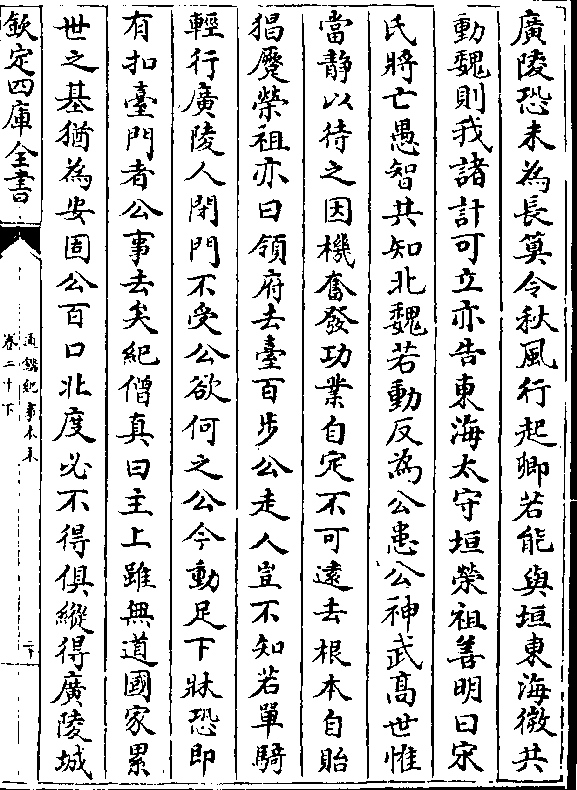 廣陵恐未為長筭今秋風行起卿若能與垣東海微共
動魏則我諸計可立亦告東海太守垣榮祖善明曰宋
氏將亡愚智共知北魏若動反為公患公神武髙世惟
當静以待之因機奮發功業自定不可逺去根本自貽
猖蹷榮祖亦曰領府去臺百步公走人豈不知若單騎
輕行廣陵人閉門不受公欲何之公今動足下牀恐即
有扣臺門者公事去矣紀僧真曰主上雖無道國家累
世之基猶為安固公百口北度必不得俱縱得廣陵城
欽定四庫全書
通鑑紀事本末
卷二十下